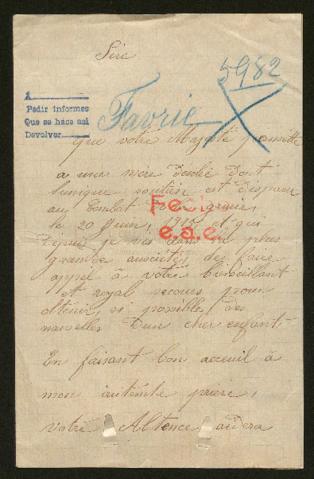 Sire
5982
A
Pedir informes
Que se hace asi
Devolver
Favrie
que votre Majesté permette
a une mère désolé dont
l'unique soutien est disparu
au Combat
le 20 Juin, 1915 et qui
depuis je vis dans la plus
grande anxiété, de faire
appel à votre bienveillant
et royal secours pour
obtenir, si possible, des
nouvelles d'un cher enfant.
En faisant bon acceuil à
mon instente prière,
votre Altence aidera
e.a.e.